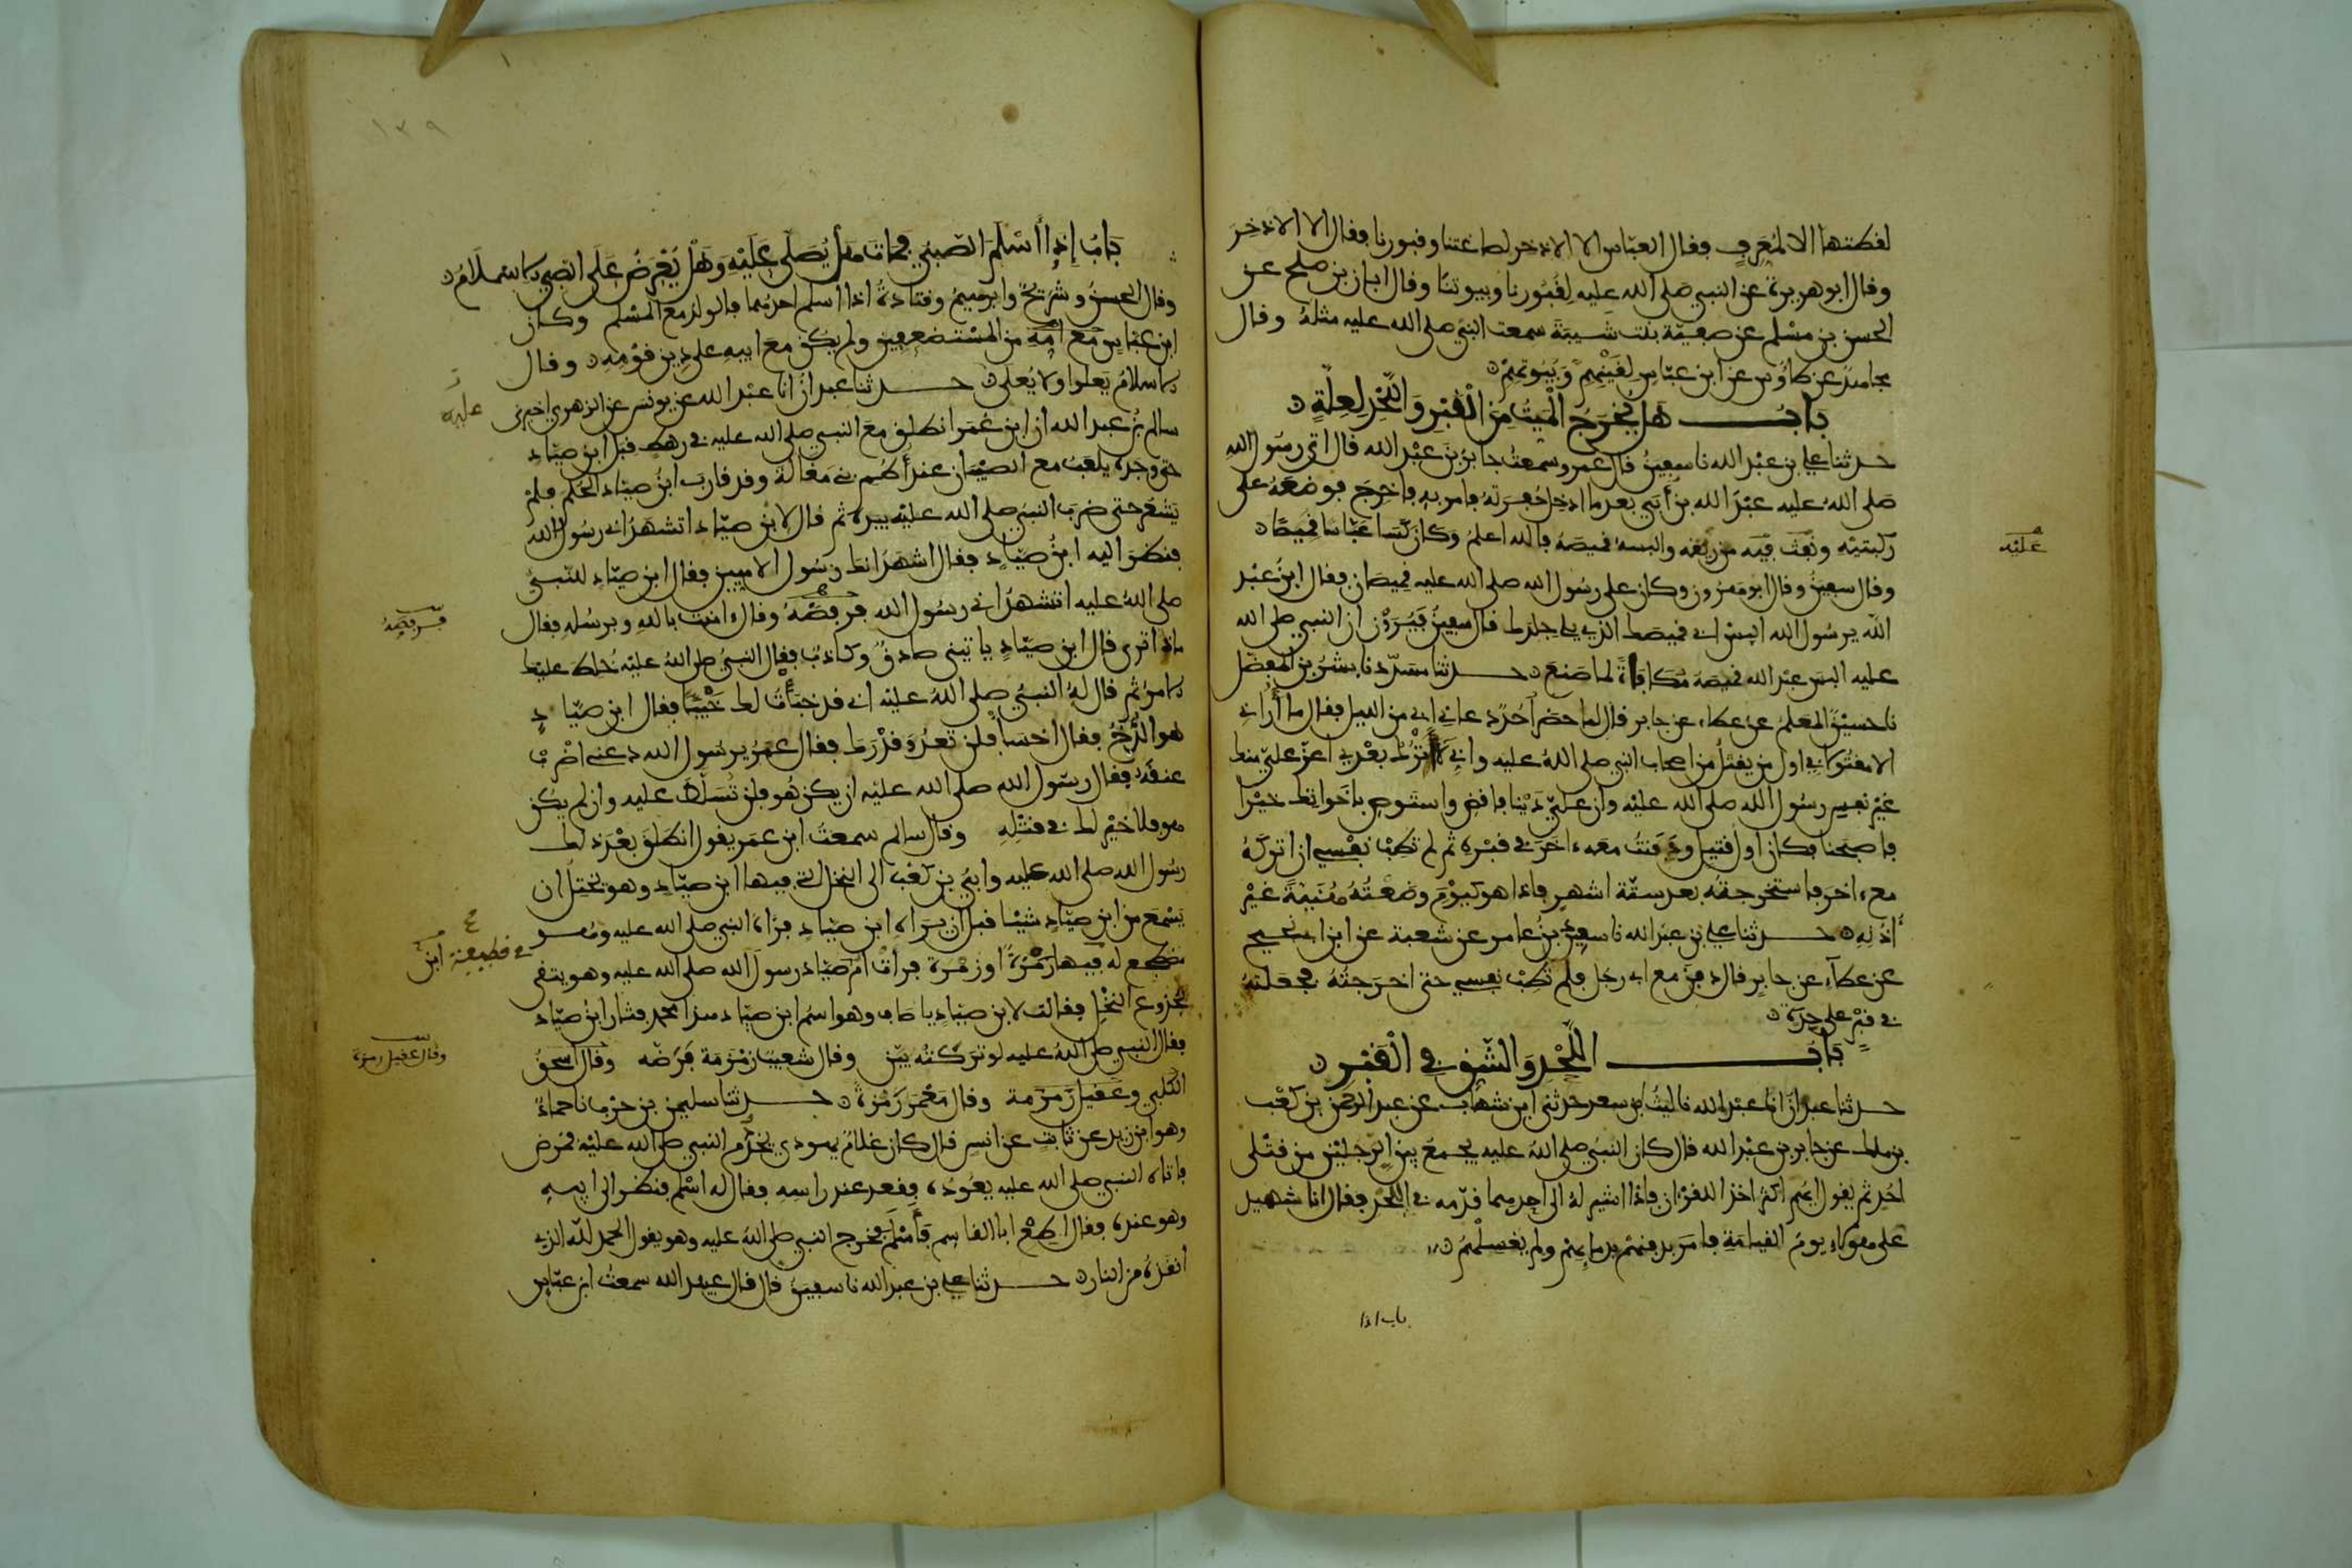 لقطتها الا لمعرف فقال العباس الا الاذخر لصاغتنا وقبورنا فقال الا الاذخر
وقال ابو هريرة عن النبي صلى الله عليه لقبورنا وبيوتنا وقال ابان بن صلح عن
الحسن بن مسلم عن صفية بنت شيبة سمعت النبي صلى الله عليه مثله وقال
مجاهد عن طاوس عن ابن عباس لقينهم وبيوتهم
باب هل يخرج الميت من القبر واللحد لعلة
حدثنا علي بن عبد الله نا سفين قال عمرو سمعت جابر بن عبد الله قال اتى رسول الله
صلى الله عليه عبد الله بن أبي بعد ما ادخل حفرته فامر به فاخرج فوضعه على
ركبتيه ونفث فيه من ريقه والبسه قميصه فالله اعلم وكان كسا عباسا قميصا
عليه
وقال سفين وقال ابو هرون وكان على رسول الله صلى الله عليه قميصان فقال ابن عبد
الله يرسول الله البس ابي قميصك الذي يلي جلدك قال سفين فيرون ان النبي صلى الله
عليه البس عبد الله قميصه مكافاة لما صنع حدثنا مسدد نا بشر بن المفضل
نا حسين المعلم عن عطاء عن جابر قال لما حضر أحد دعاني ابي من الليل فقال ما أراني
الا مقتولا في اول من يقتل من اصحاب النبي صلى الله عليه واني لا اترك بعدي اعز علي منك
غير نفس رسول الله صلى الله عليه وان علي دينا فاقض واستوص باخواتك خيرا
فاصبحنا فكان اول قتيل ودفنت معه ءاخر في قبره ثم لم تطب نفسي ان اتركه
مع ءاخر فاستخرجته بعد ستة اشهر فاذا هو كيوم وضعته هنية غير
أذنه حدثنا علي بن عبد الله نا سعيد بن عامر عن شعبة عن ابن ابي نجيح
عن عطاء عن جابر قال دفن مع ابي رجل فلم تطب نفسي حتى اخرجته فجعلته
في قبر على حدة
باب اللحد والشق في القبر
حدثنا عبدان انا عبد الله نا ليث بن سعد حدثني ابن شهاب عن عبد الرحمن بن كعب
بن ملك عن جابر بن عبد الله قال كان النبي صلى الله عليه يجمع بين الرجلين من قتلى
احد ثم يقول ايهم اكثر اخذا للقرءان فاذا اشير له الى احدهما قدمه في اللحد فقال انا شهيد
على هؤلاء يوم القيامة فامر بدفنهم بدمائهم ولم يغسلهم
باب اذا
١٣٩
باب إذا أسلم الصبي فمات هل يصلى عليه وهل يعرض على الصبي الاسلام
وقال الحسن وشريح وابرهيم وقتادة اذا اسلم احدهما فالولد مع المسلم وكان
ابن عباس مع امه من المستضعفين ولم يكن مع ابيه على دين قومه وقال
الاسلام يعلوا ولا يعلى حدثنا عبدان انا عبد الله عن يونس عن الزهري اخبرني
سالم بن عبد الله ان ابن عمر انطلق مع النبي صلى الله عليه في رهط قبل ابن صياد
عليه
حتى وجده يلعب مع الصبيان عند أطم بني مغالة وقد قارب ابن صياد الحلم فلم
يشعر حتى ضرب النبي صلى الله عليه بيده ثم قال لابن صياد اتشهد اني رسول الله
فنظر اليه ابن صياد فقال اشهد انك رسول الاميين فقال ابن صياد للنبي
صلى الله عليه اتشهد اني رسول الله فرفصه وقال ءامنت بالله وبرسله فقال
ماذا ترى قال ابن صياد ياتيني صادق وكاذب فقال النبي صلى الله عليه خلط عليك
الامر ثم قال له النبي صلى الله عليه اني قد خبأت لك خبيئا فقال ابن صياد
هو الدخ فقال اخسأ فلن تعدو قدرك فقال عمر يرسول الله دعني اضرب
عنقه فقال رسول الله صلى الله عليه ان يكن هو فلن تسلط عليه وان لم يكن
هو فلا خير لك في قتله وقال سالم سمعت ابن عمر يقول انطلق بعد ذلك
رسول الله صلى الله عليه وابي بن كعب الى النخل التي فيها ابن صياد وهو يختل ان
يسمع من ابن صياد شيئا قبل ان يراه ابن صياد فراه النبي صلى الله عليه وهو
مضطجع له فيها رمزة او زمرة فرأت ام صياد رسول الله صلى الله عليه وهو يتقي
في قطيفة
بجذوع النخل فقالت لابن صياد يا صاف وهو اسم ابن صياد هذا محمد فثار ابن صياد
فقال النبي صلى الله عليه لو تركته بين وقال شعيب زمزمة فرضه وقال اسحق
وقال عقيل رمزة
الكلبي وعقيل رمرمة وقال معمر رمزة حدثنا سليمن بن حرب نا حماد
وهو ابن زيد عن ثابت عن انس قال كان غلام يهودي يخدم النبي صلى الله عليه فمرض
فاتاه النبي صلى الله عليه يعوده فقعد عند راسه فقال له اسلم فنظر الى ابيه
وهو عنده فقال اطع ابا القاسم فأسلم فخرج النبي صلى الله عليه وهو يقول الحمد لله الذي
أنقذه من النار حدثنا علي بن عبد الله نا سفين قال قال عبيد الله سمعت ابن عباس